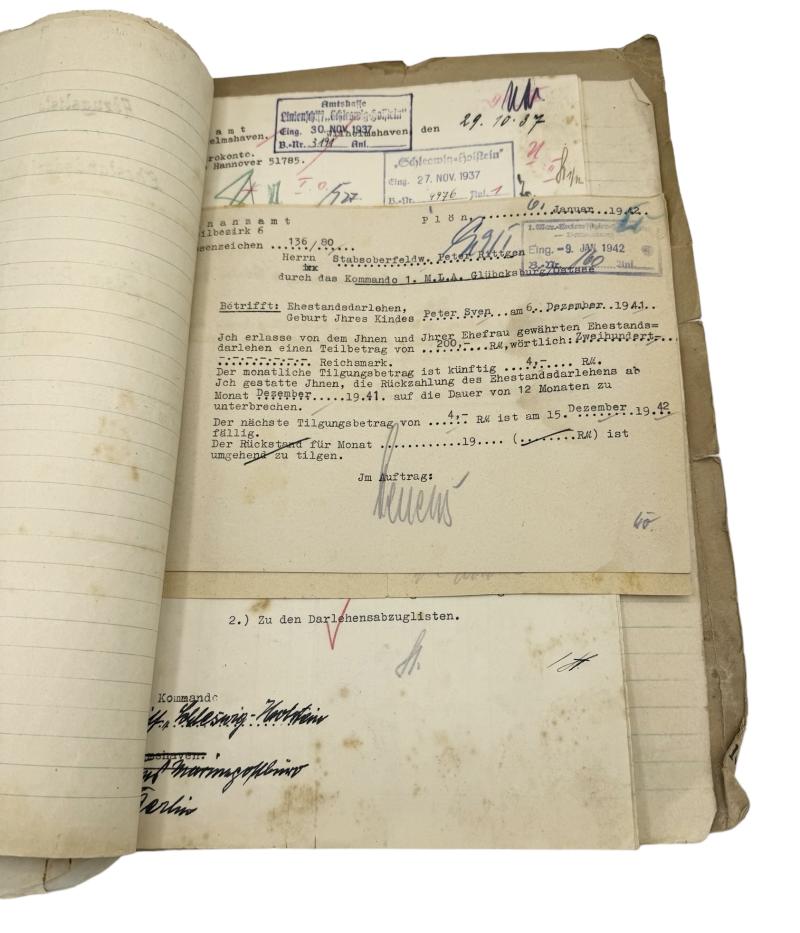 amt
elmshaven,
Amtskasse
Linienschiff „Schleswig-Holstein"
Eing. 30. NOV. 1937
B.-Nr. 3191 Anl.
Wilhelmshaven, den 29.10.37
rokonto.
Hannover 51785.
„Schleswig-Holstein"
Eing. 27. NOV. 1937
B.-Nr. 4976 Anl. 1
Plön, 6. Januar 1942.
nanzamt
ilbezirk 6
enzeichen 136/80
Eing. -9. JAN 1942
B.-Nr. 60 Anl.
Herrn Stabsoberfeldw. Peter Rittgen
durch das Kommando 1. M.L.A. Glübcksburg/Ostsee
Betrifft: Ehestandsdarlehen,
Geburt Jhres Kindes Peter Sven am 6. Dezember 1941.
Jch erlasse von dem Jhnen und Jhrer Ehefrau gewährten Ehestands=
darlehen einen Teilbetrag von 200,- RM, wörtlich: Zweihundert-
Reichsmark.
Der monatliche Tilgungsbetrag ist künftig 4,- RM.
Jch gestatte Jhnen, die Rückzahlung des Ehestandsdarlehens ab
Monat Dezember 1941. auf die Dauer von 12 Monaten zu
unterbrechen.
Der nächste Tilgungsbetrag von 4,- RM ist am 15. Dezember 1942
fällig.
Der Rückstand für Monat ............19.... (........RM) ist
umgehend zu tilgen.
Jm Auftrag:
2.) Zu den Darlehensabzuglisten.
Kommando
Schleswig-Holstein
Marinepostbüro
Berlin